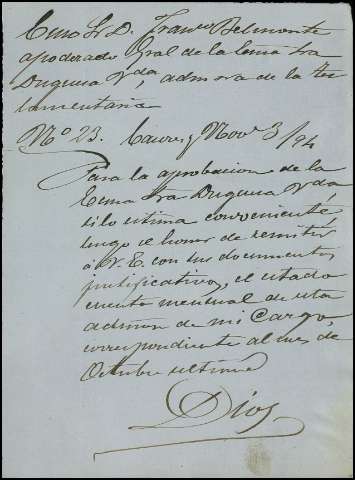 Exmo Sr. D. Franco Belmonte
apoderado Gral de la Exma Sra
Duquesa Vda, admora de la Tes
tamentaria
No 23. Nov. 3/94
Para la aprobacion de la
Exma Sra Duquesa Vda,
si lo estima conveniente,
tengo el honor de remitir
á V. E. con sus documentos
justificativos, el estado
cuenta mensual de esta
admon de mi Cargo,
correspondiente al mes de
Octubre último
Dios